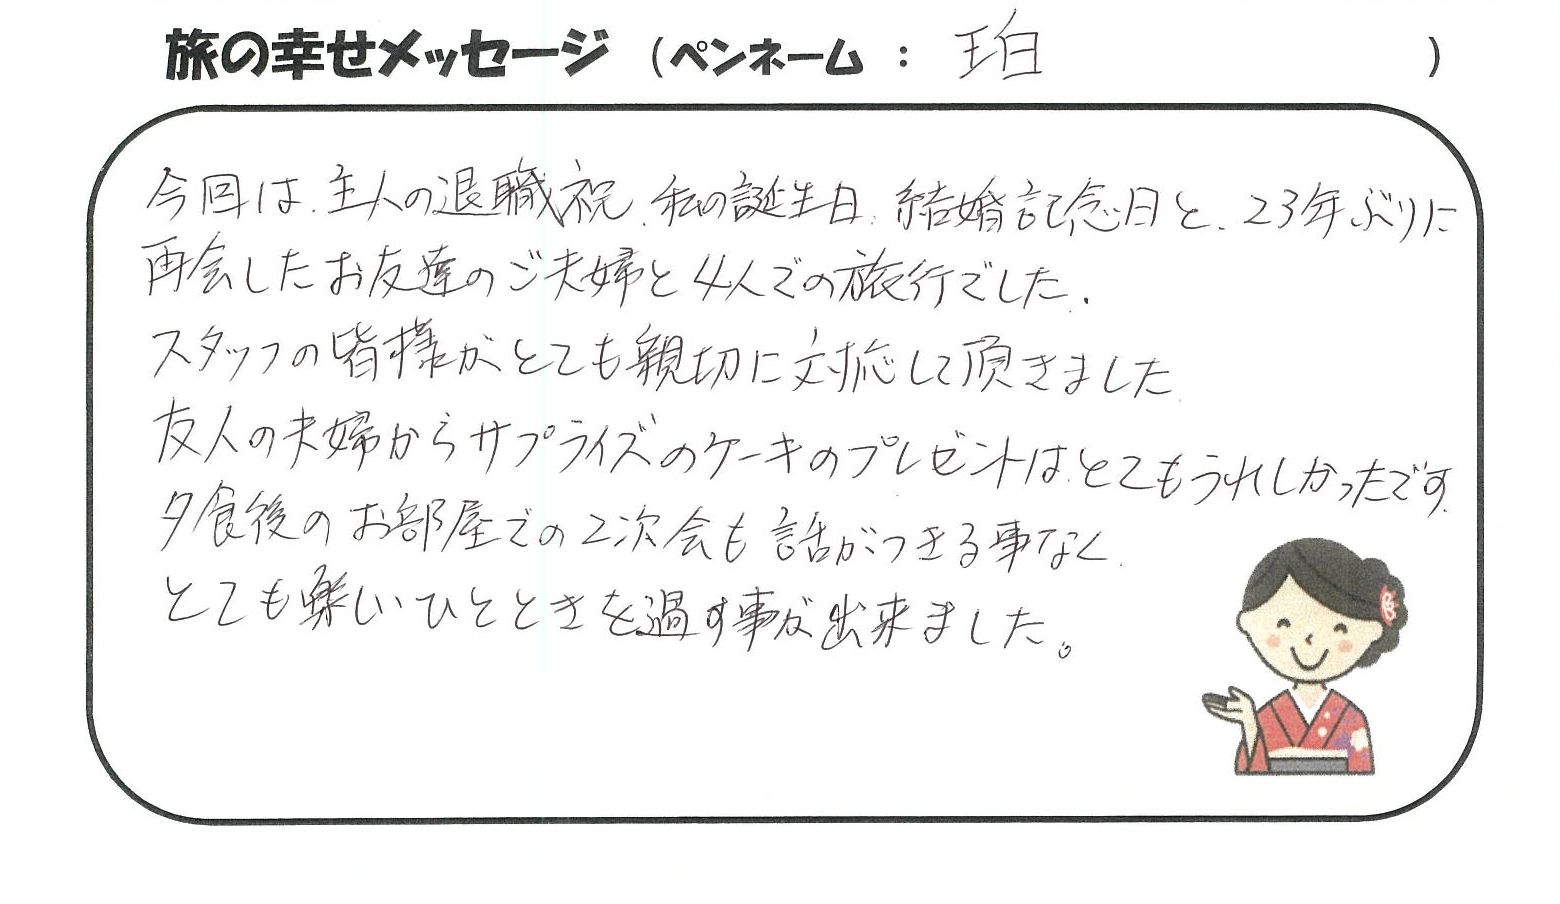 旅の幸せメッセージ (ペンネーム : 珀 )
今回は、主人の退職祝、私の誕生日、結婚記念日と、23年ぶりに
再会したお友達のご夫婦と4人での旅行でした.
スタッフの皆様がとても親切に対応して頂きました
友人の夫婦からサプライズのケーキのプレゼントはとてもうれしかったです.
夕食後のお部屋での2次会も話がつきる事なく
とても楽しいひとときを過す事が出来ました。